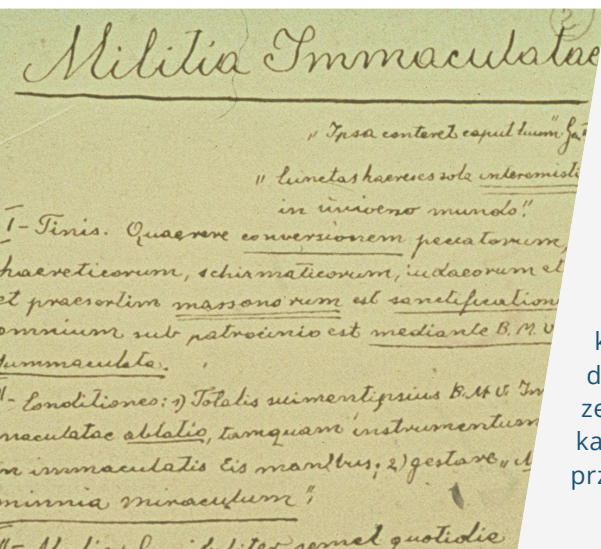 2
Militia Immaculatae
"Ipsa conteret caput tuum"
"Cunctas haereses sola interemisti
in universo mundo".
I - Finis. Quaerere conversionem peccatorum,
haereticorum, schismaticorum, iudaeorum et
et praesertim massonorum et sanctificationem
omnium sub patrocinio et mediante B.M.V.
Immaculata.
II - Conditiones: 1) Totalis suimetipsius B.M.V. Im
maculatae oblatio, tamquam instrumentum
in immaculatis Eis manibus; 2) gestare
miraculum";
semet quotidie
k
d
ze
ka
prz